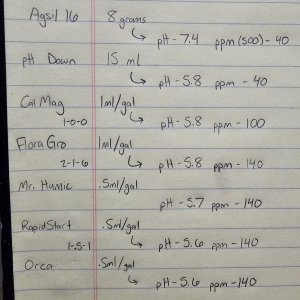 Agsil 16 8 grams
↳ pH - 7.4 ppm (500) - 40
pH Down 15 ml
↳ pH - 5.8 ppm - 40
Cal Mag 1ml/gal
1-0-0 ↳ pH - 5.8 ppm - 100
FloraGro 1ml/gal
2-1-6 ↳ pH - 5.8 ppm - 140
Mr. Humic .5ml/gal
pH - 5.7 ppm - 140
RapidStart .5ml/gal
1-.5-1 ↳ pH - 5.6 ppm - 140
Orca .5ml/gal
↳ pH - 5.6 ppm - 140